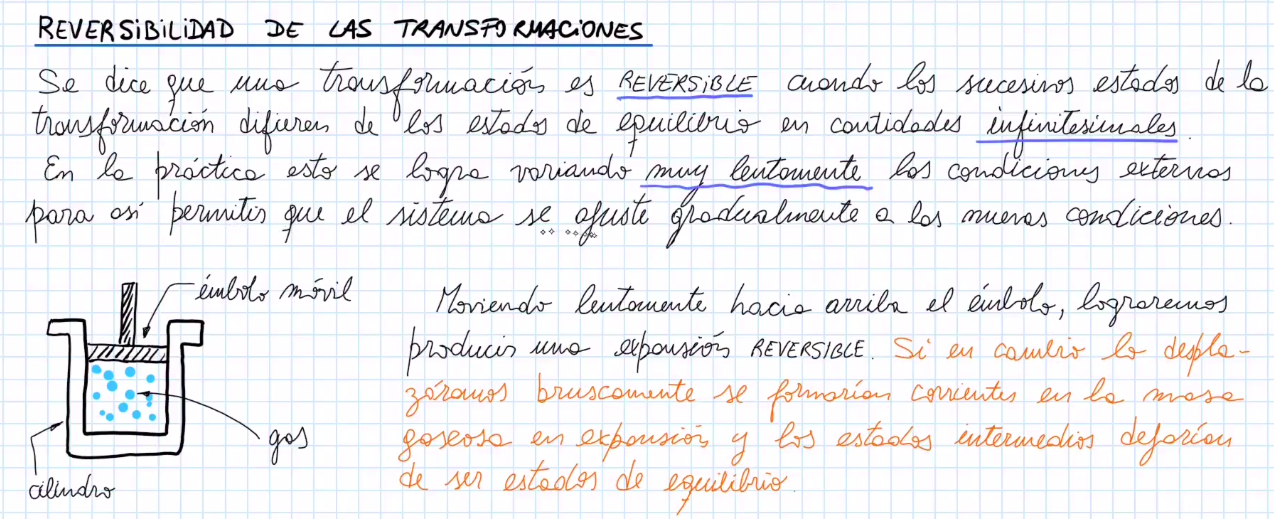 REVERSIBILIDAD DE LAS TRANSFORMACIONES
Se dice que una transformación es REVERSIBLE cuando los sucesivos estados de la
transformación difieren de los estados de equilibrio en cantidades infinitesimales.
En la práctica esto se logra variando muy lentamente las condiciones externas
para así permitir que el sistema se ajuste gradualmente a las nuevas condiciones.
émbolo móvil
gas
cilindro
Moviendo lentamente hacia arriba el émbolo, lograremos
producir una expansión REVERSIBLE. Si en cambio lo despla-
záramos bruscamente se formarían corrientes en la masa
gaseosa en expansión y los estados intermedios dejarían
de ser estados de equilibrio.